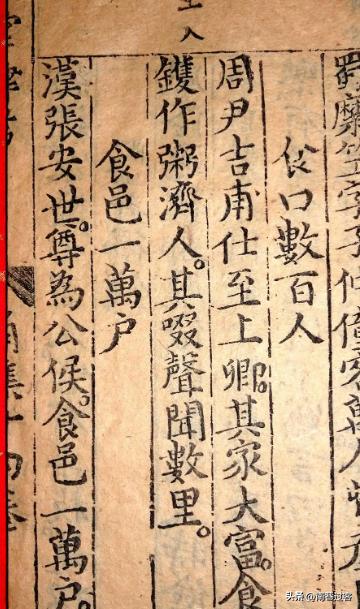 字子仲僮客萬人
食口數百人
周尹吉甫仕至上卿。其家大富。食
鑊作粥濟人。其啜聲聞數里。
食邑一萬户
漢張安世。尊為公侯。食邑一萬户
头条